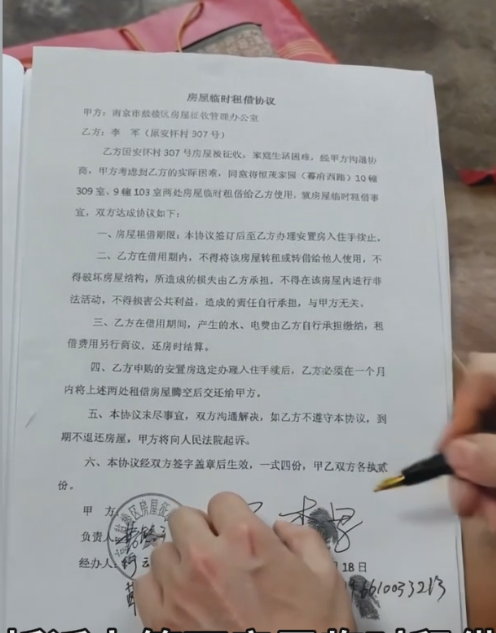 房屋临时租借协议
甲方：南京市鼓楼区房屋征收管理办公室
乙方：李 军（原安怀村 307 号）
乙方因安怀村 307 号房屋被征收，家庭生活困难，经甲方沟通协
商，甲方考虑到乙方的实际困难，同意将恒茂家园（幕府西路）10 幢
309 室、9 幢 103 室两处房屋临时租借给乙方使用，就房屋临时租借事
宜，双方达成协议如下：
一、房屋租借期限：本协议签订后至乙方办理安置房入住手续止。
二、乙方在借用期内，不得将该房屋转租或转借给他人使用，不
得破坏房屋结构，所造成的损失由乙方承担，不得在该房屋内进行非
法活动，不得损害公共利益，造成的责任自行承担，与甲方无关。
三、乙方在借用期间，产生的水、电费由乙方自行承担缴纳，租
借费用另行商议，还房时结算。
四、乙方申购的安置房选定办理入住手续后，乙方必须在一个月
内将上述两处租借房屋腾空后交还给甲方。
五、本协议未尽事宜，双方沟通解决，如乙方不遵守本协议，到
期不退还房屋，甲方将向人民法院起诉。
六、本协议经双方签字盖章后生效，一式四份，甲乙双方各执贰
份。
甲 方
负责人
经办人
18 日